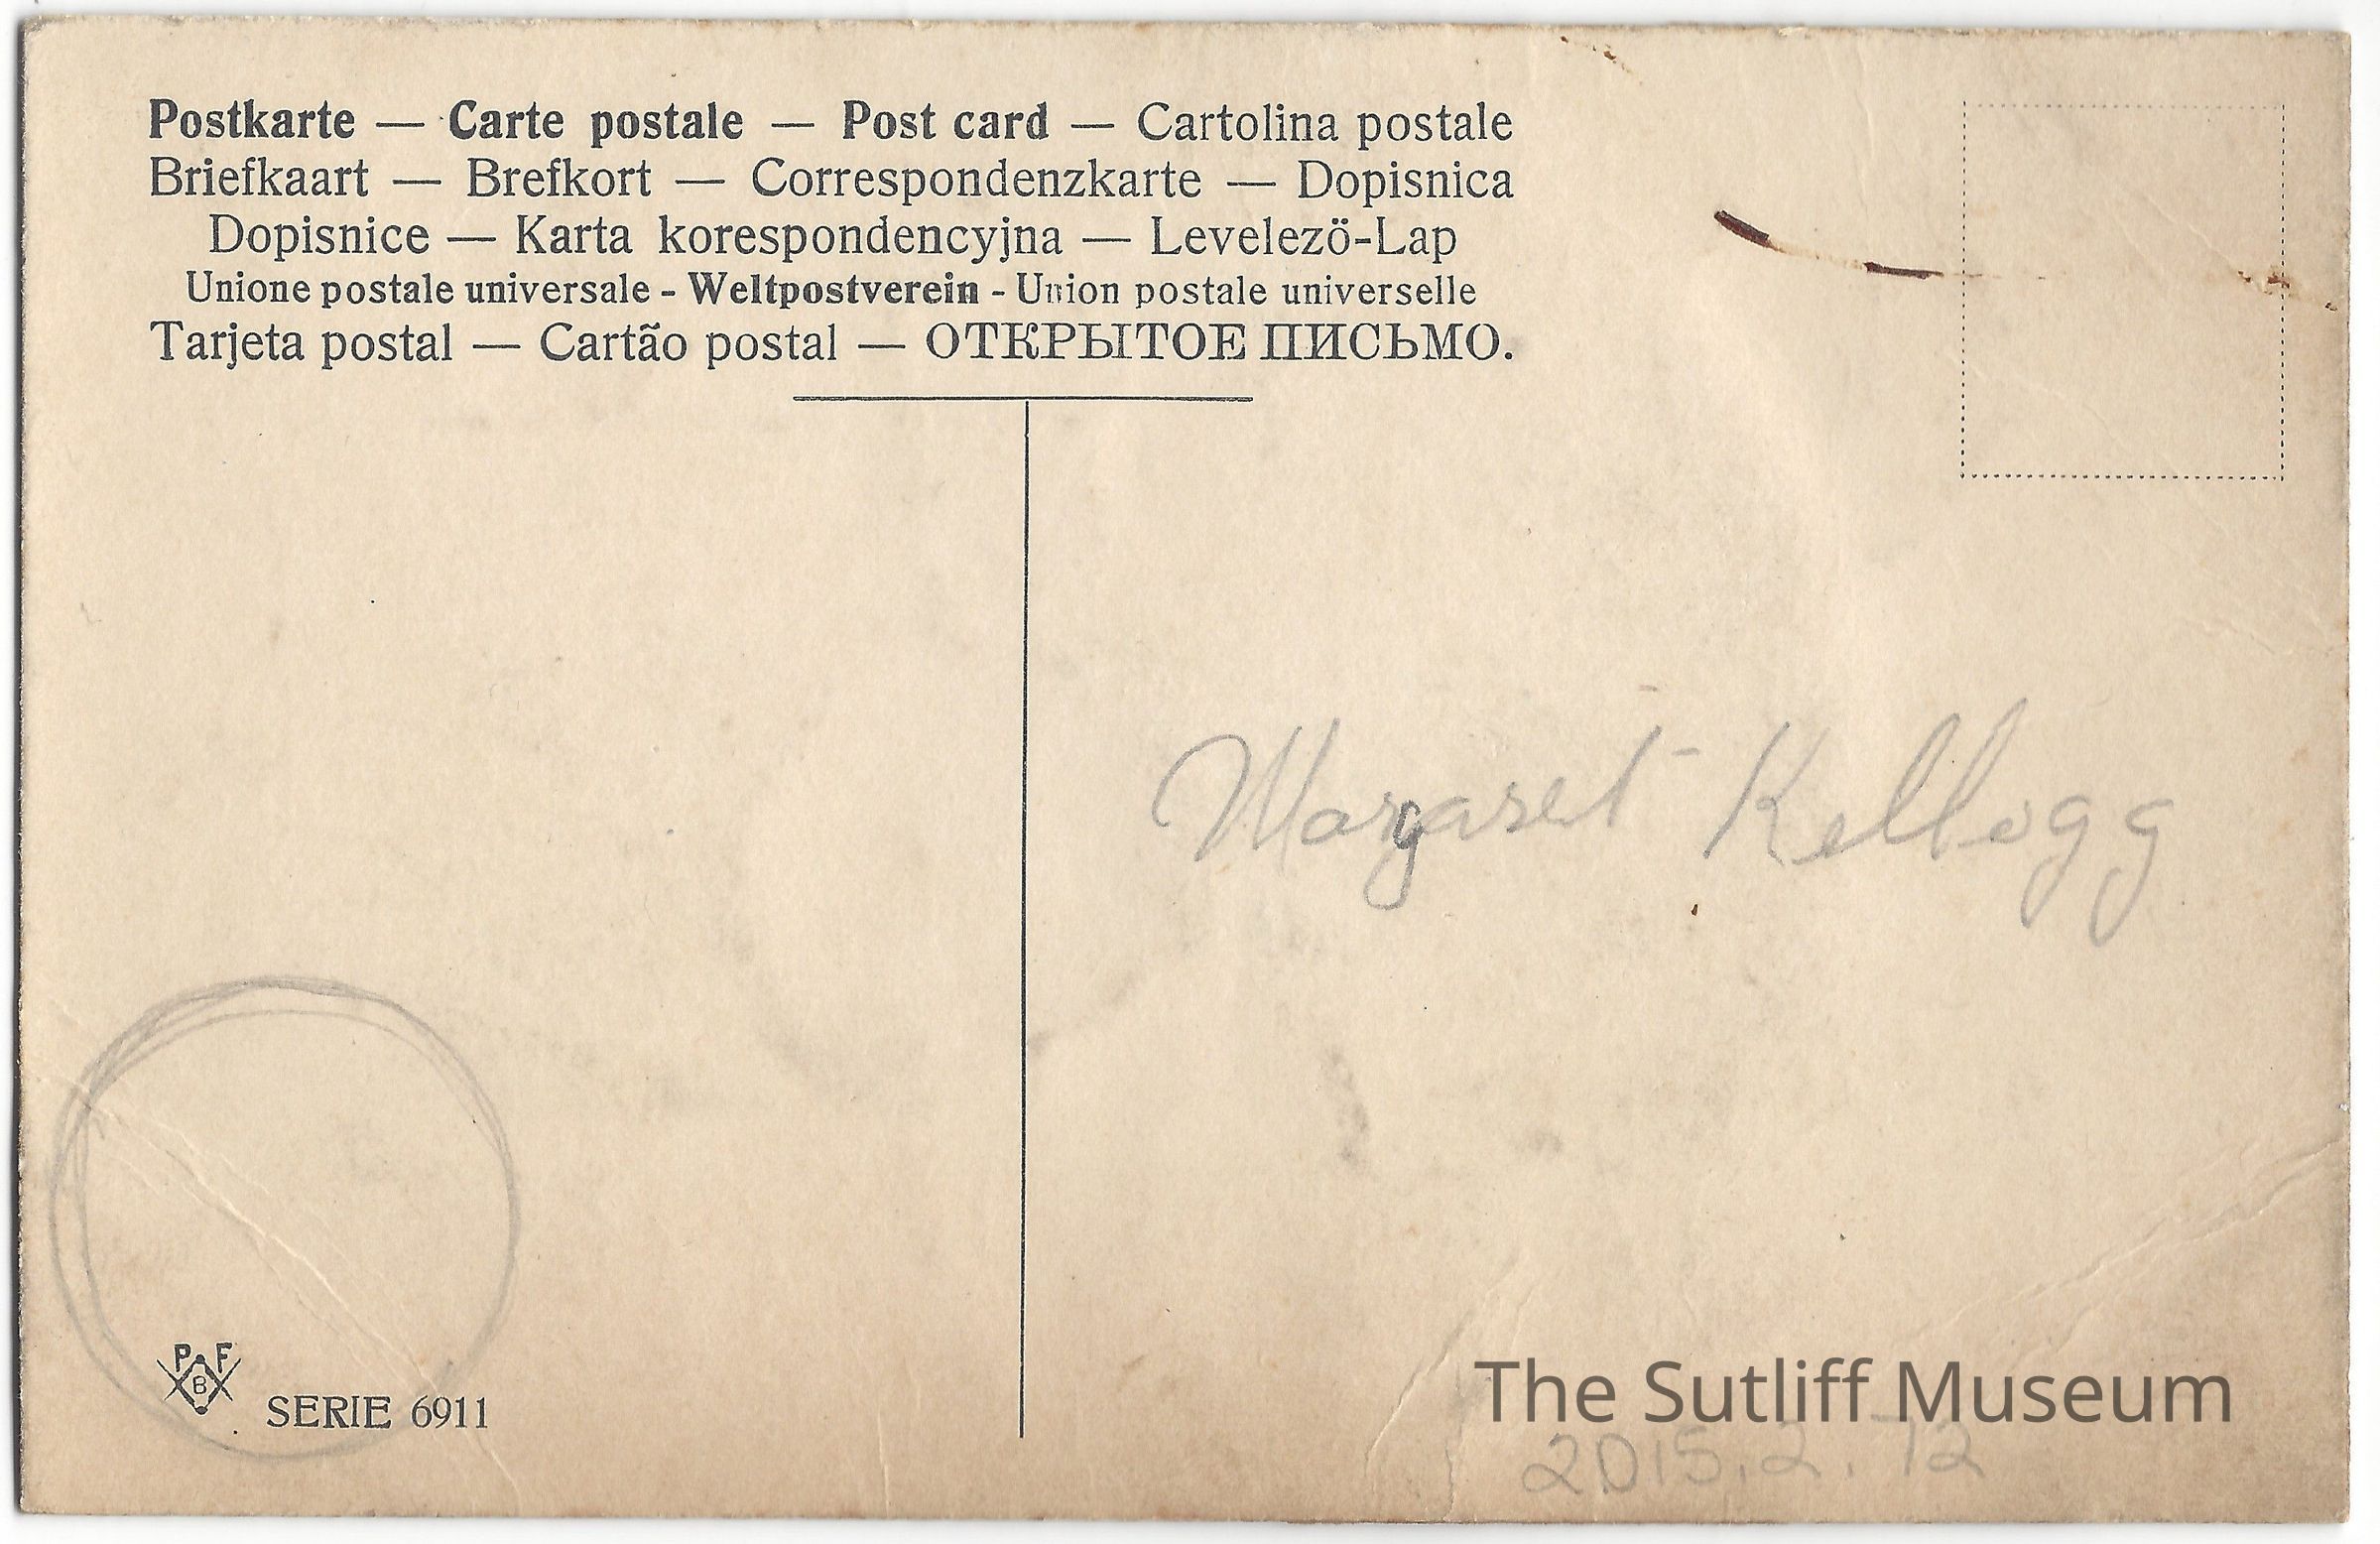 Postkarte — Carte postale — Post card — Cartolina postale
Briefkaart — Brefkort — Correspondenzkarte — Dopisnica
Dopisnice — Karta korespondencyjna — Levelezö-Lap
Unione postale universale - Weltpostverein - Union postale universelle
Tarjeta postal — Cartão postal — ОТКРЫТОЕ ПИСЬМО.
Margaret Kellogg
P F
B
SERIE 6911
The Sutliff Museum
2015.2.12